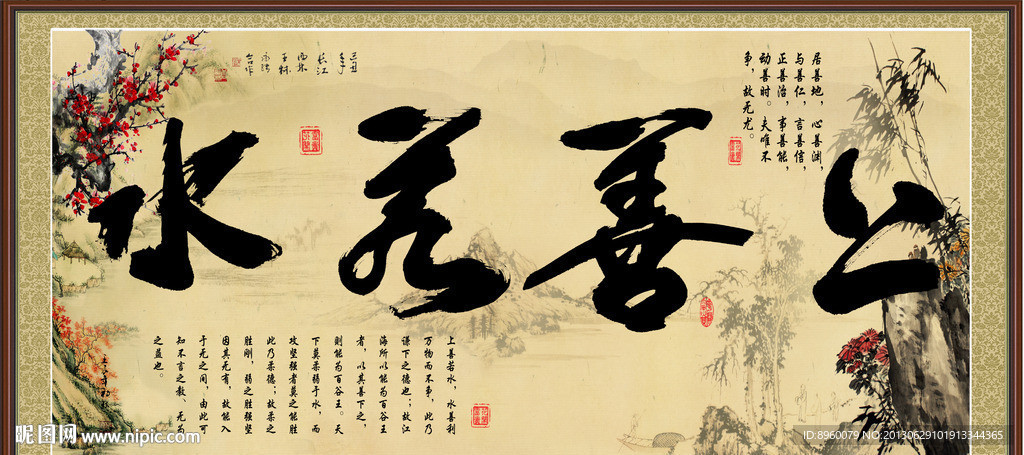 上善若水
居善地，心善渊，
与善仁，言善信，
正善治，事善能，
动善时。夫唯不
争，故无尤。
上善若水，水善利
万物而不争，此乃
谦下之德也；故江
海所以能为百谷王
者，以其善下之，
则能为百谷王。天
下莫柔弱于水，而
攻坚强者莫之能胜
此乃柔德；故柔之
胜刚，弱之胜强坚
因其无有，故能入
于无之间，由此可
知不言之教、无为
之益也。
昵图网 www.nipic.com
ID:8960079 NO:20130629101913344365